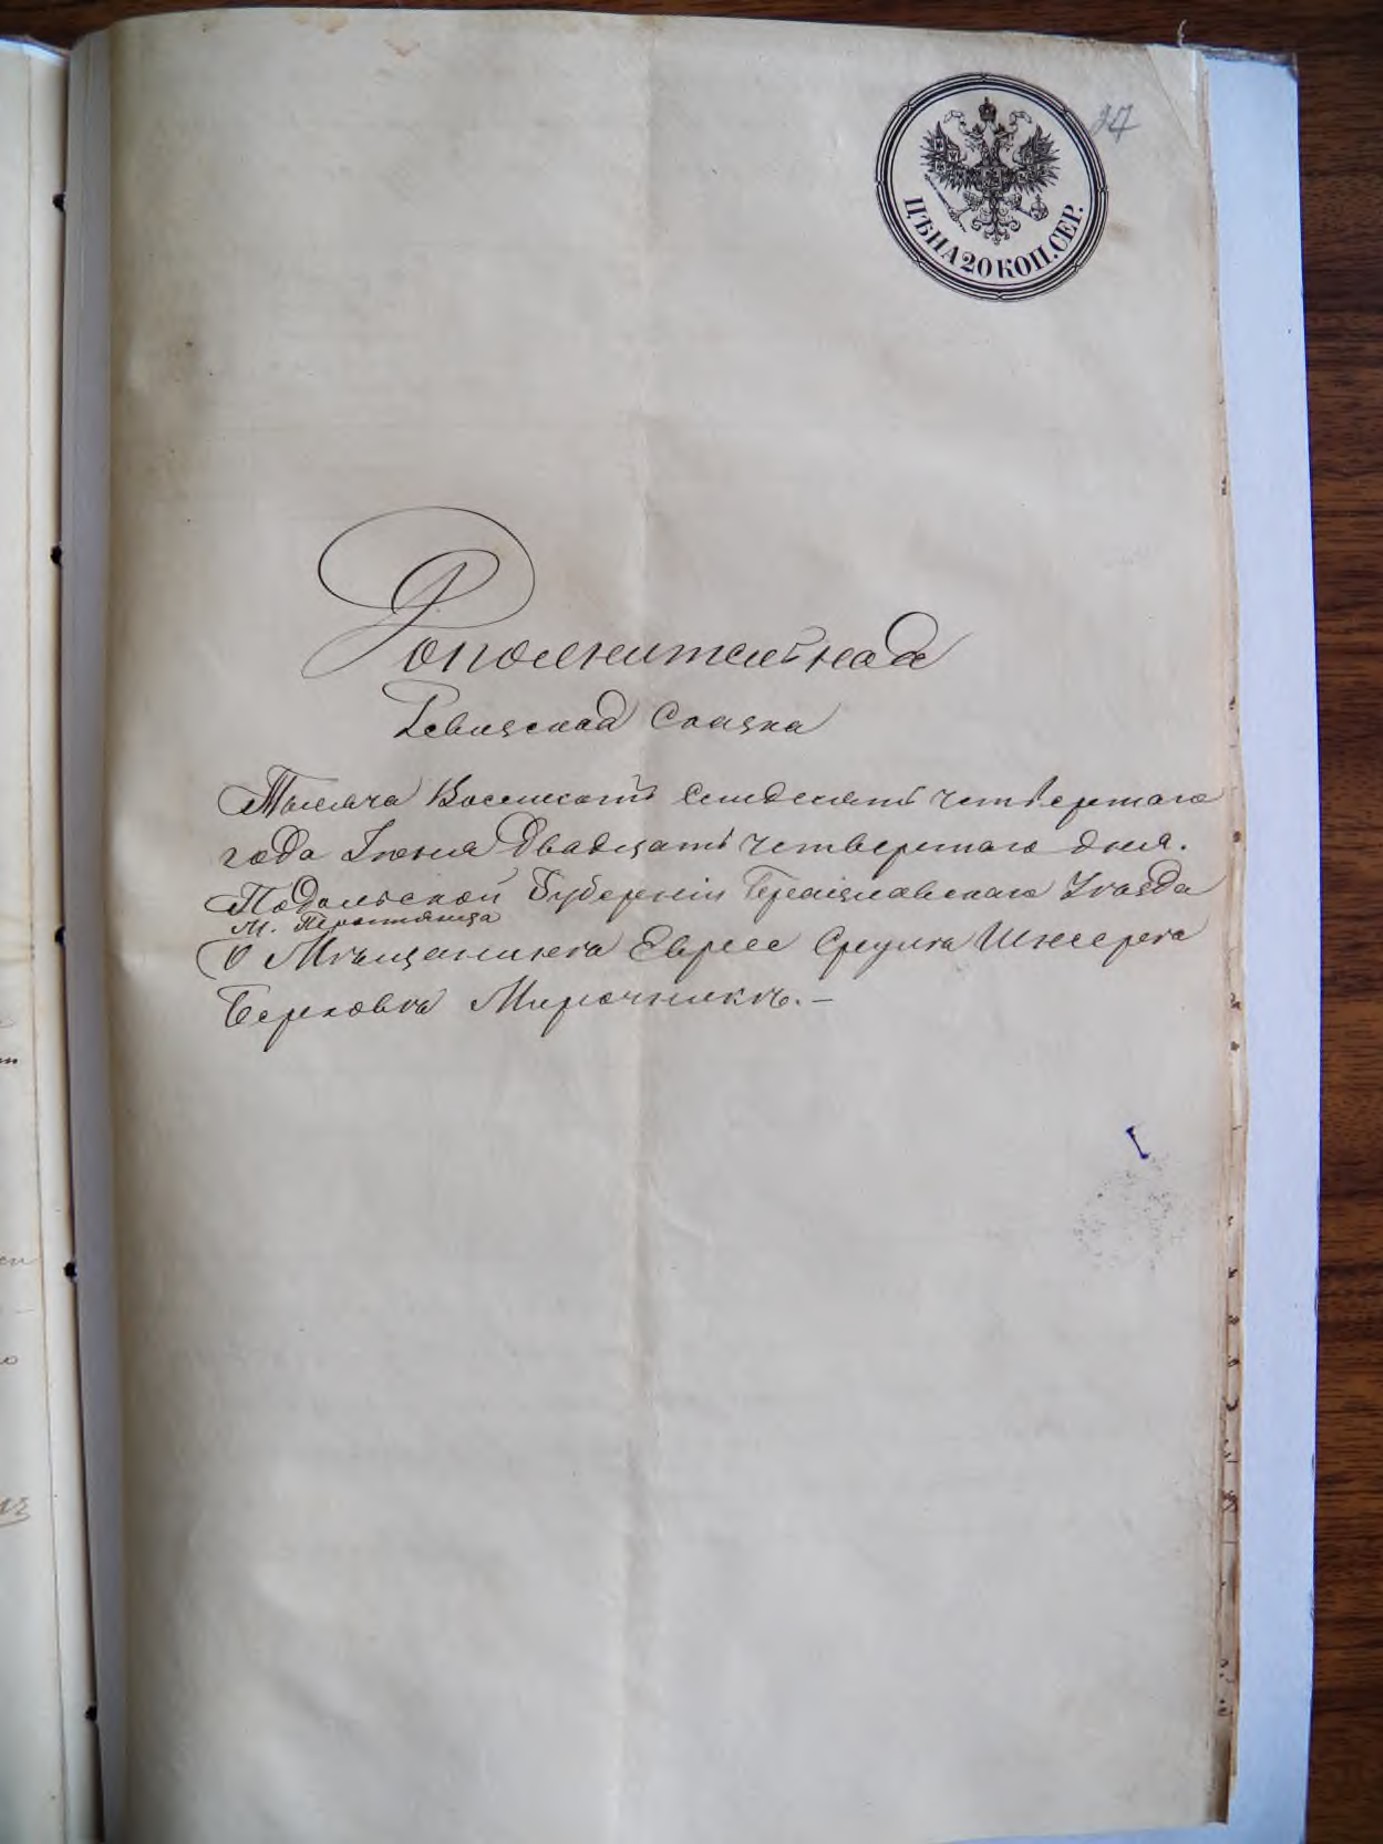 ЦѢНА 20 КОП. СЕР.
Дополнительная
Ревизская Сказка
Тысяча Восемьсотъ Семдесятъ четвертаго
года Іюня Двадцать четвертаго дня.
Подольской Губерніи Брацлавскаго Уѣзда
М.
О Мѣщанинѣ Еврее Сруль Шмерѣ
Берковѣ Мирочникъ. —